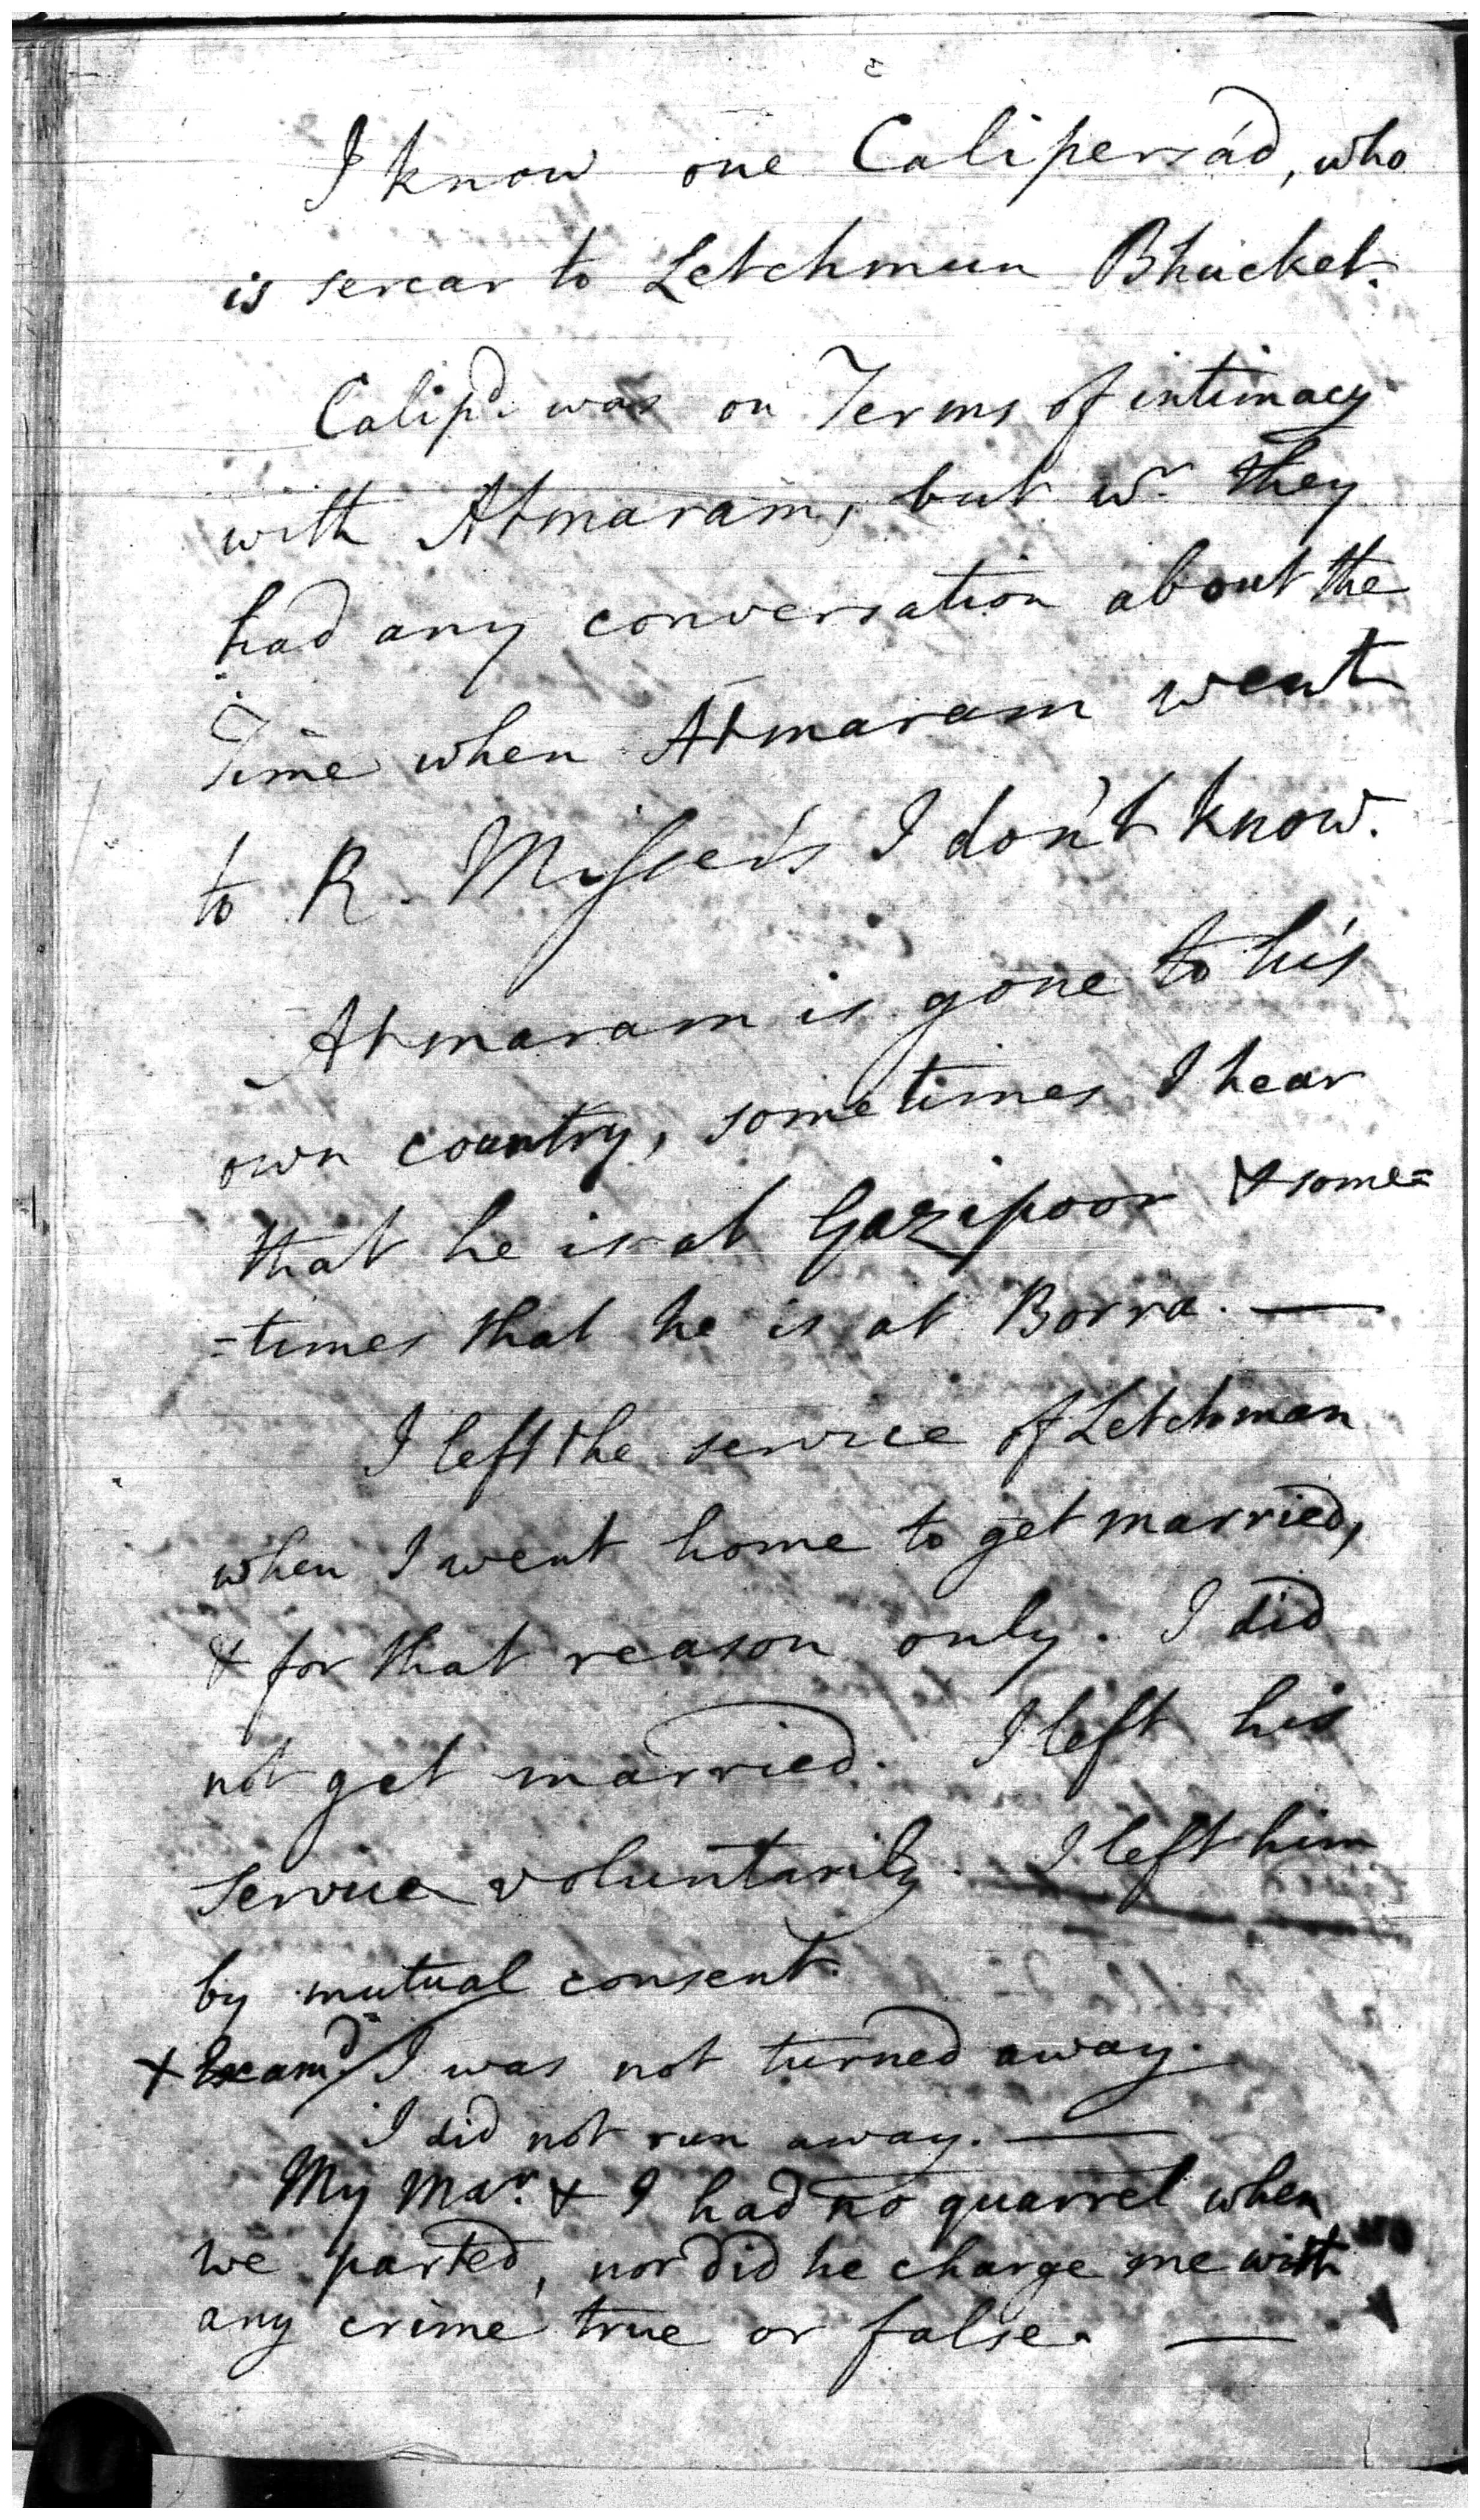 I know one Calipersád, who
is sercar to Letchmun Bhucket.
Calip^d. was on Terms of intimacy
with Atmaram, but w^r. they
had any conversation about the
Time when Atmaram went
to R. Misser's I don't know.
Atmaram is gone to his
own country, sometimes I hear
that he is at Gazipoor & some=
=times that he is at Borra. —
I left the service of Letchman
when I went home to get married,
& for that reason only. I did
not get married. I left his
service voluntarily. I left him
by mutual consent.
+ Exam^d. / I was not turned away.
I did not run away. —
My Mar. & I had no quarrel when
we parted, nor did he charge me with
any crime true or false. —